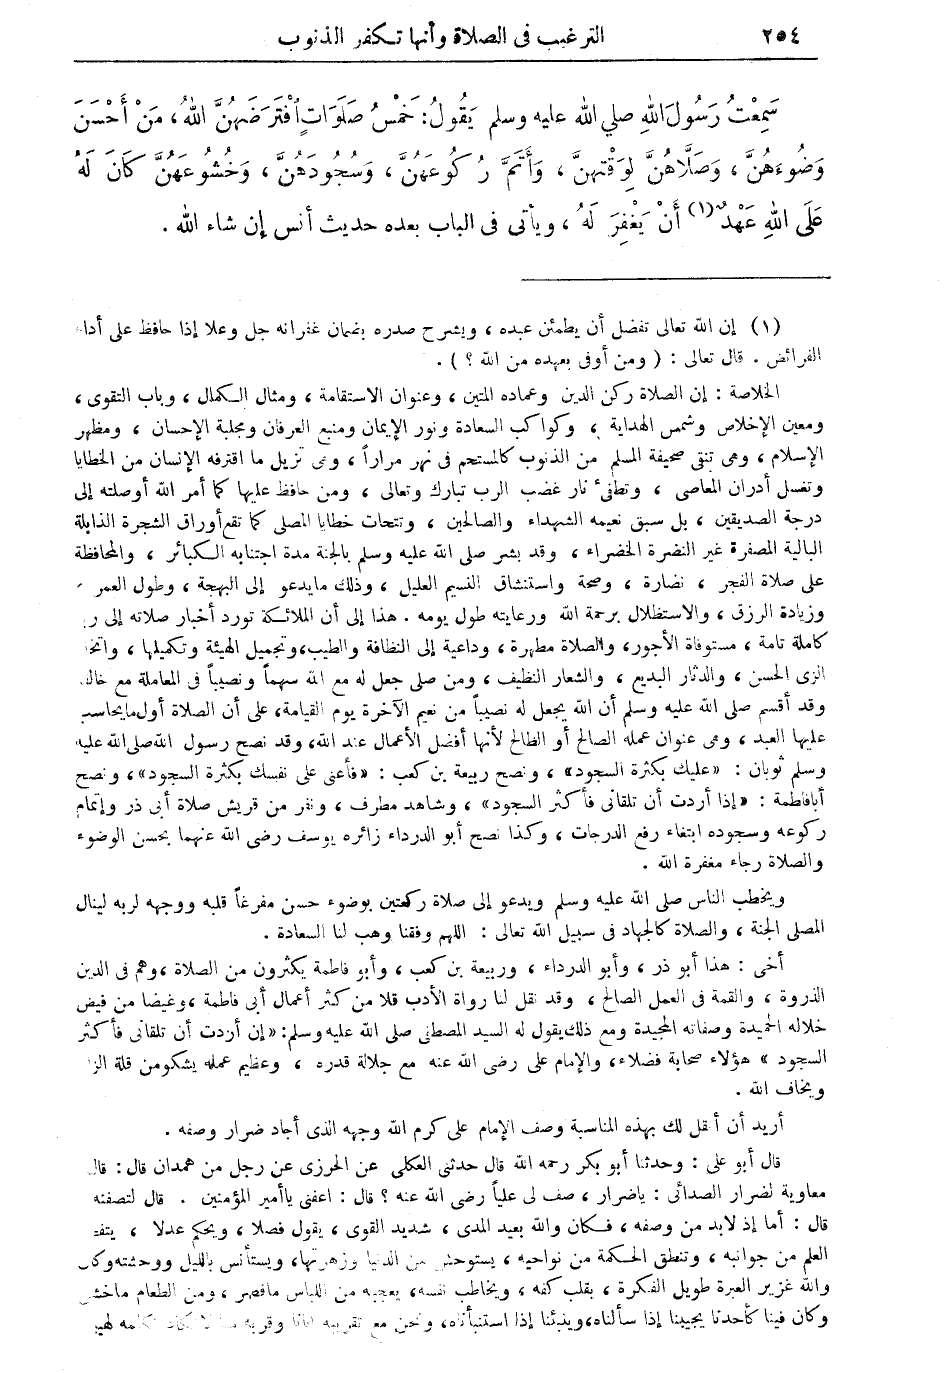 ٢٥٤ الترغيب فى الصلاة وأنها تكفر الذنوب
سَمِعْتُ رَسُولَ اللهِ صلي الله عليه وسلم يَقُولُ: خَمْسُ صَلَوَاتٍ اُفْتَرَضَهُنَّ اللهُ، مَنْ أَحْسَنَ
وُضُوءَهُنَّ، وَصَلَّاهُنَّ لِوَقْتِهِنَّ، وَأَتَمَّ رُكُوعَهُنَّ، وَسُجُودَهُنَّ، وَخُشُوعَهُنَّ كَانَ لَهُ
عَلَى اللهِ عَهْدٌ (١) أَنْ يَغْفِرَ لَهُ، ويأتى فى الباب بعده حديث أنس إن شاء الله .
(١) إن الله تعالى تفضل أن يطمئن عبده ، ويشرح صدره بضمان غفرانه جل وعلا إذا حافظ على أداء
الفرائض . قال تعالى : ( ومن أوفى بعهده من الله ؟ ) .
الخلاصة : إن الصلاة ركن الدين وعماده المتين ، وعنوان الاستقامة ، ومثال الكمال ، وباب التقوى ،
ومعين الإخلاص وشمس الهداية ، وكواكب السعادة ونور الإيمان ومنبع العرفان ومجلبة الإحسان ، ومظهر
الإسلام ، وهى تنقى صحيفة المسلم من الذنوب كالمستحم فى نهر مراراً ، وهى تزيل ما اقترفه الإنسان من الخطايا
وتغسل أدران المعاصى ، وتطفىء نار غضب الرب تبارك وتعالى ، ومن حافظ عليها كما أمر الله أوصلته إلى
درجة الصديقين ، بل سبق نعيمه الشهداء والصالحين ، وتتحات خطايا المصلى كما تقع أوراق الشجرة الذابلة
البالية المصفرة غير النضرة الخضراء ، وقد بشر صلى الله عليه وسلم بالجنة مدة اجتنابه الكبائر ، والمحافظة
على صلاة الفجر ، نضارة ، وصحة واستنشاق النسيم العليل ، وذلك مايدعو إلى البهجة ، وطول العمر
وزيادة الرزق ، والاستظلال برحمة الله ورعايته طول يومه . هذا إلى أن الملائكة تورد أخبار صلاته إلى
كاملة تامة ، مستوفاة الأجور، والصلاة مطهرة ، وداعية إلى النظافة والطيب، وتجميل الهيئة وتكميلها ،
الزى الحسن ، والدثار البديع ، والشعار النظيف ، ومن صلى جعل له مع الله سهماً ونصيباً فى المعاملة مع
وقد أقسم صلى الله عليه وسلم أن الله يجعل له نصيباً من نعيم الآخرة يوم القيامة، على أن الصلاة أول مايحاسب
عليها العبد ، وهى عنوان عمله الصالح أو الطالح لأنها أفضل الأعمال عند الله، وقد نصح رسول الله صلى الله عليه
وسلم ثوبان : «عليك بكثرة السجود» ، ونصح ربيعة بن كعب : «فأعنى على نفسك بكثرة السجود»، ونصح
أبا فاطمة : «إذا أردت أن تلقانى فأكثر السجود» ، وشاهد مطرف ، ونفر من قريش صلاة أبى ذر وإتمام
ركوعه وسجوده ابتغاء رفع الدرجات ، وكذا نصح أبو الدرداء زائره يوسف رضى الله عنهما بحسن الوضوء
والصلاة رجاء مغفرة الله .
ويخطب الناس صلى الله عليه وسلم ويدعو إلى صلاة ركعتين بوضوء حسن مفرغاً قلبه ووجهه لربه لينال
المصلى الجنة ، والصلاة كالجهاد فى سبيل الله تعالى : اللهم وفقنا وهب لنا السعادة .
أخى : هذا أبو ذر ، وأبو الدرداء ، وربيعة بن كعب ، وأبو فاطمة يكثرون من الصلاة ،وهم فى الدين
الذروة ، والقمة فى العمل الصالح ، وقد نقل لنا رواة الأدب قلا من كثر أعمال أبى فاطمة ،وغيضا من فيض
خلاله الحميدة وصفاته المجيدة ومع ذلك يقول له السيد المصطفى صلى الله عليه وسلم: «إن أردت أن تلقانى فأكثر
السجود » هؤلاء صحابة فضلاء، والإمام على رضى الله عنه مع جلالة قدره ، وعظيم عمله يشكو من قلة
ويخاف الله .
أريد أن أنقل لك بهذه المناسبة وصف الإمام على كرم الله وجهه الذى أجاد ضرار وصفه .
قال أبو على : وحدثنا أبو بكر رحمه الله قال حدثنى العكلى عن الحرزى عن رجل من همدان قال : قال
معاوية لضرار الصدائى : ياضرار ، صف لى علياً رضى الله عنه ؟ قال : اعفنى ياأمير المؤمنين . قال لتصفنه
قال : أما إذ لابد من وصفه ، فكان والله بعيد المدى ، شديد القوى ، يقول فصلا ، ويحكم عدلا ،
العلم من جوانبه ، وتنطق الحكمة من نواحيه ، يستوحش من الدنيا وزهرتها، ويستأنس بالليل ووحشته
والله غزير العبرة طويل الفكرة ، يقلب كفه ، ويخاطب نفسه، يعجبه من اللباس ماقصر ، ومن الطعام ماخشن
وكان فينا كأحدنا يجيبنا إذا سألناه، وينبئنا إذا استنبأناه، ونحن مع تقريبه إيانا وقربه